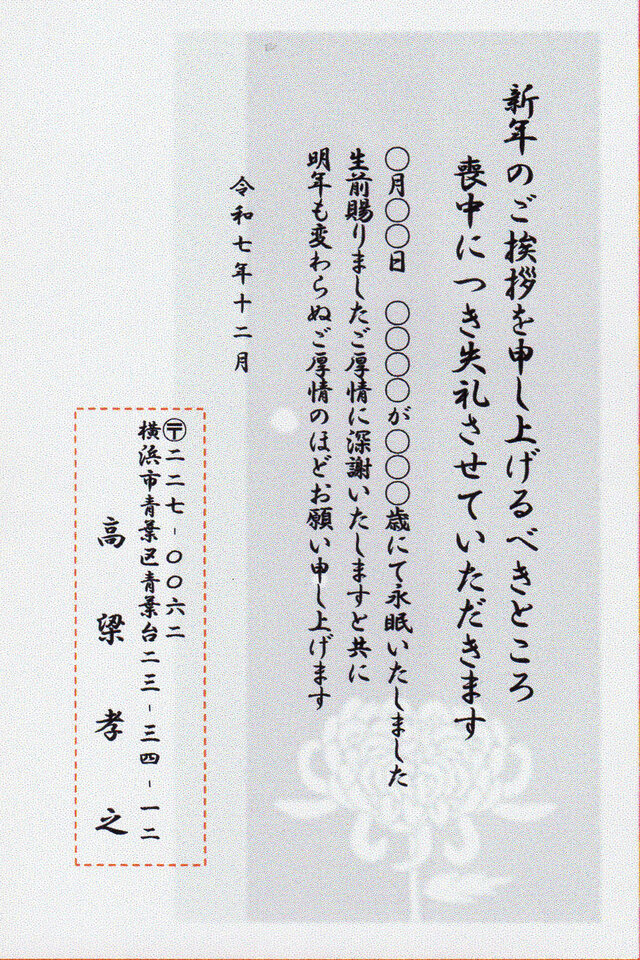 新年のご挨拶を申し上げるべきところ
喪中につき失礼させていただきます
〇月〇〇日　〇〇〇〇が〇〇〇歳にて永眠いたしました
生前賜りましたご厚情に深謝いたしますと共に
明年も変わらぬご厚情のほどお願い申し上げます
令和七年十二月
〒二二七-〇〇六二
横浜市青葉区青葉台二三-三四-一二
高梁孝之